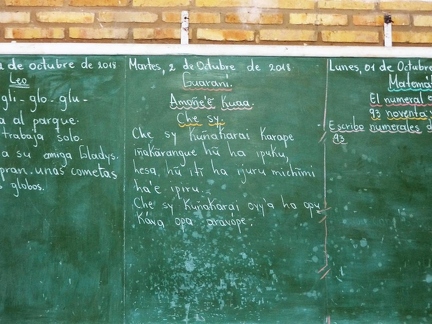 de octubre de 2018
Leo
gli- glo- glu-
a al parque.
trabaja solo.
a su amiga Gladys.
pran unas cometas
globos.
Martes, 2 de Octubre de 2018
Guaraní.
Amoñe'ẽ kuaa.
Che sy.
Che sy kuñakarai karape
iñakãrangue hũ ha ipuku,
hesa hũ iti ha ijuru michĩmi
ha'e ipiru.
Che sy kuñakarai oky'a ha opu
káva opa aravópe.
Lunes, 01 de Octubre
Matemá
El numeral 9
93 noventa y
Escribo numerales d
93